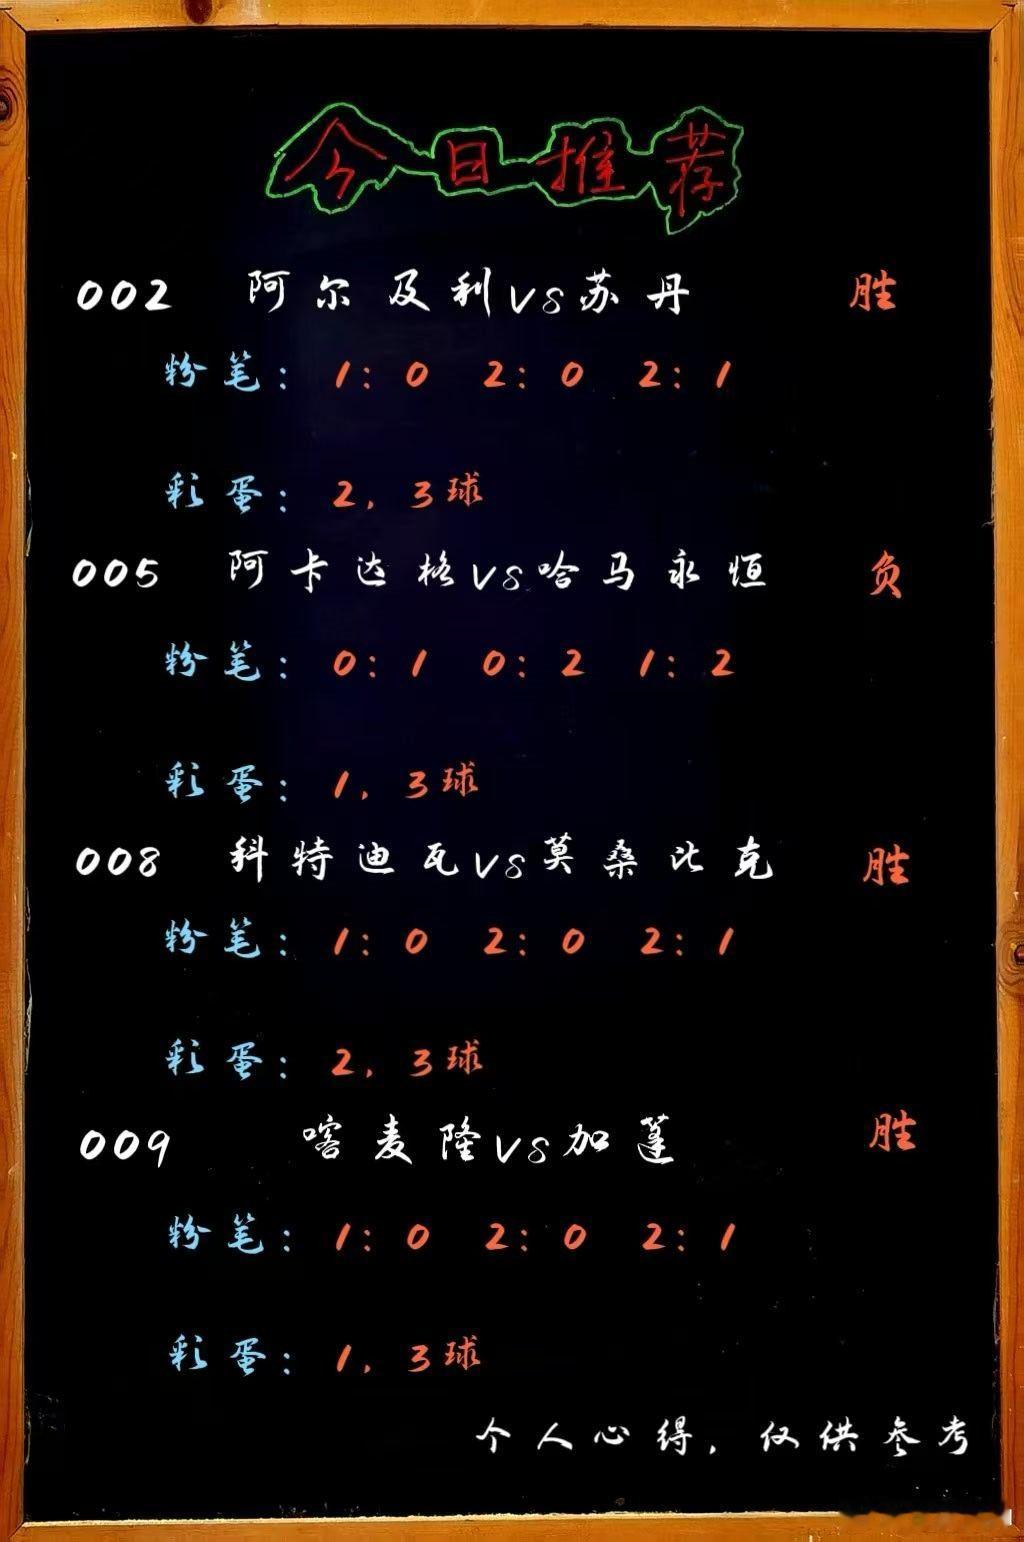 今日推荐
002 阿尔及利vs苏丹 胜
粉笔: 1:0 2:0 2:1
彩蛋: 2, 3球
005 阿卡达格vs哈马永恒 负
粉笔: 0:1 0:2 1:2
彩蛋: 1, 3球
008 科特迪瓦vs莫桑比克 胜
粉笔: 1:0 2:0 2:1
彩蛋: 2, 3球
009 喀麦隆vs加蓬 胜
粉笔: 1:0 2:0 2:1
彩蛋: 1, 3球
个人心得, 仅供参考